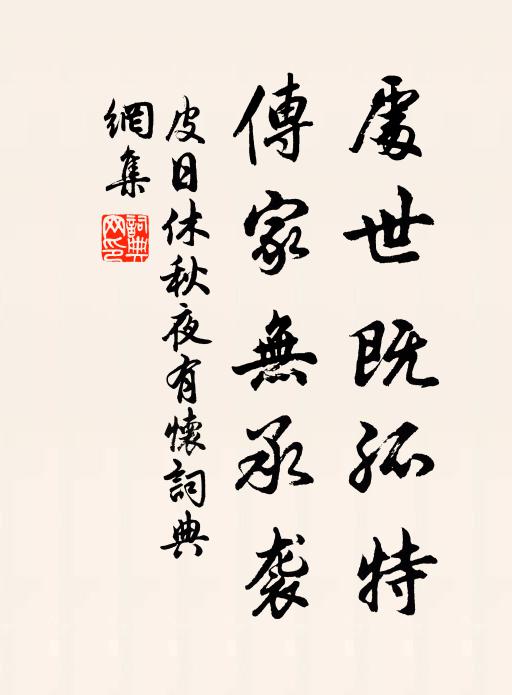 處世既孤特
傳家無承袭
皮日休秋夜有懷詞典
網集
詞典網印